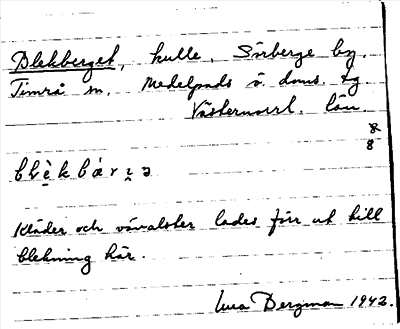 Blekberget, kulle, Sörberge by.
Timrå sn, Medelpads ö. doms. tg
Västernorrl. län.
8
8
blè̱kbárɪ̱ə
Kläder och vävalster lades förr ut till
blekning här.
Bergman 1942.